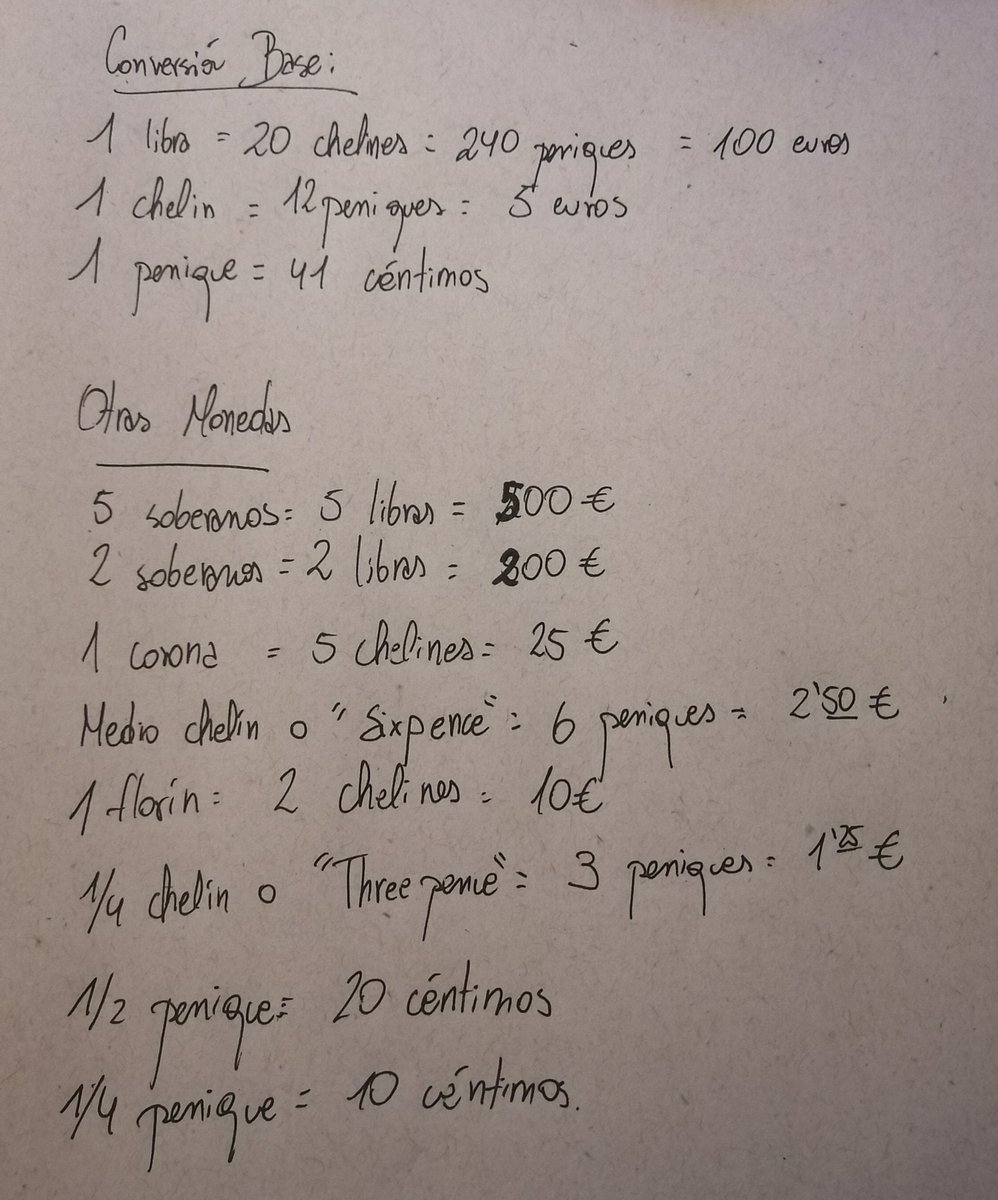 Conversión Base:
1 libra = 20 chelines = 240 peniques = 100 euros
1 chelin = 12 peniques = 5 euros
1 penique = 41 céntimos
Otras Monedas
5 soberanos = 5 libras = 500 €
2 soberanos = 2 libras = 200 €
1 corona = 5 chelines = 25 €
Medio chelín o "Sixpence" = 6 peniques = 2'50 €
1 florín = 2 chelines = 10€
1/4 chelin o "Threepence" = 3 peniques = 1'25 €
1/2 penique = 20 céntimos
1/4 penique = 10 céntimos.